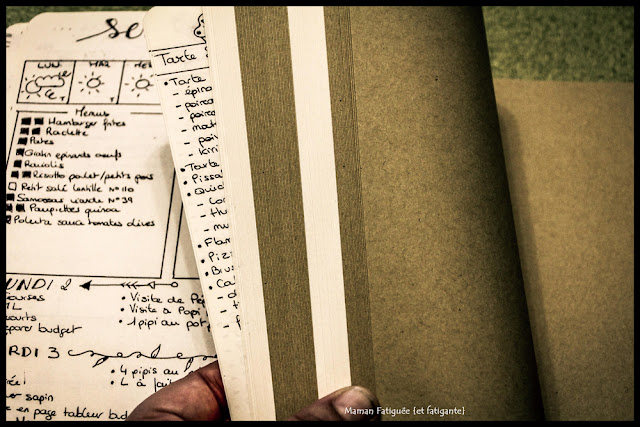 SE
LUN
MAR
ME
Menus
Hamburger frites
Raclette
Pates
Gratin épinards oeufs
Raviolis
Risotto poulet/petits pois
Petit salé lentille N°110
Samossas viande N°39
Paupiettes quinoa
Polenta sauce tomates olives
UNDI 2
ourses
ML
ourts
eparer budget
• Visite de Pa
• Visite à Papi
• 1 pipi au pot
RDI 3
• 4 pipis au p
er sapin
e en page tableur bud
Tarte
• Tarte
- épina
- poire
- poire
- poi
• Tarte
• Pissa
• Quic
• Flam
• Piz
• Brus
• Ca
Maman Fatiguée {et fatigante}